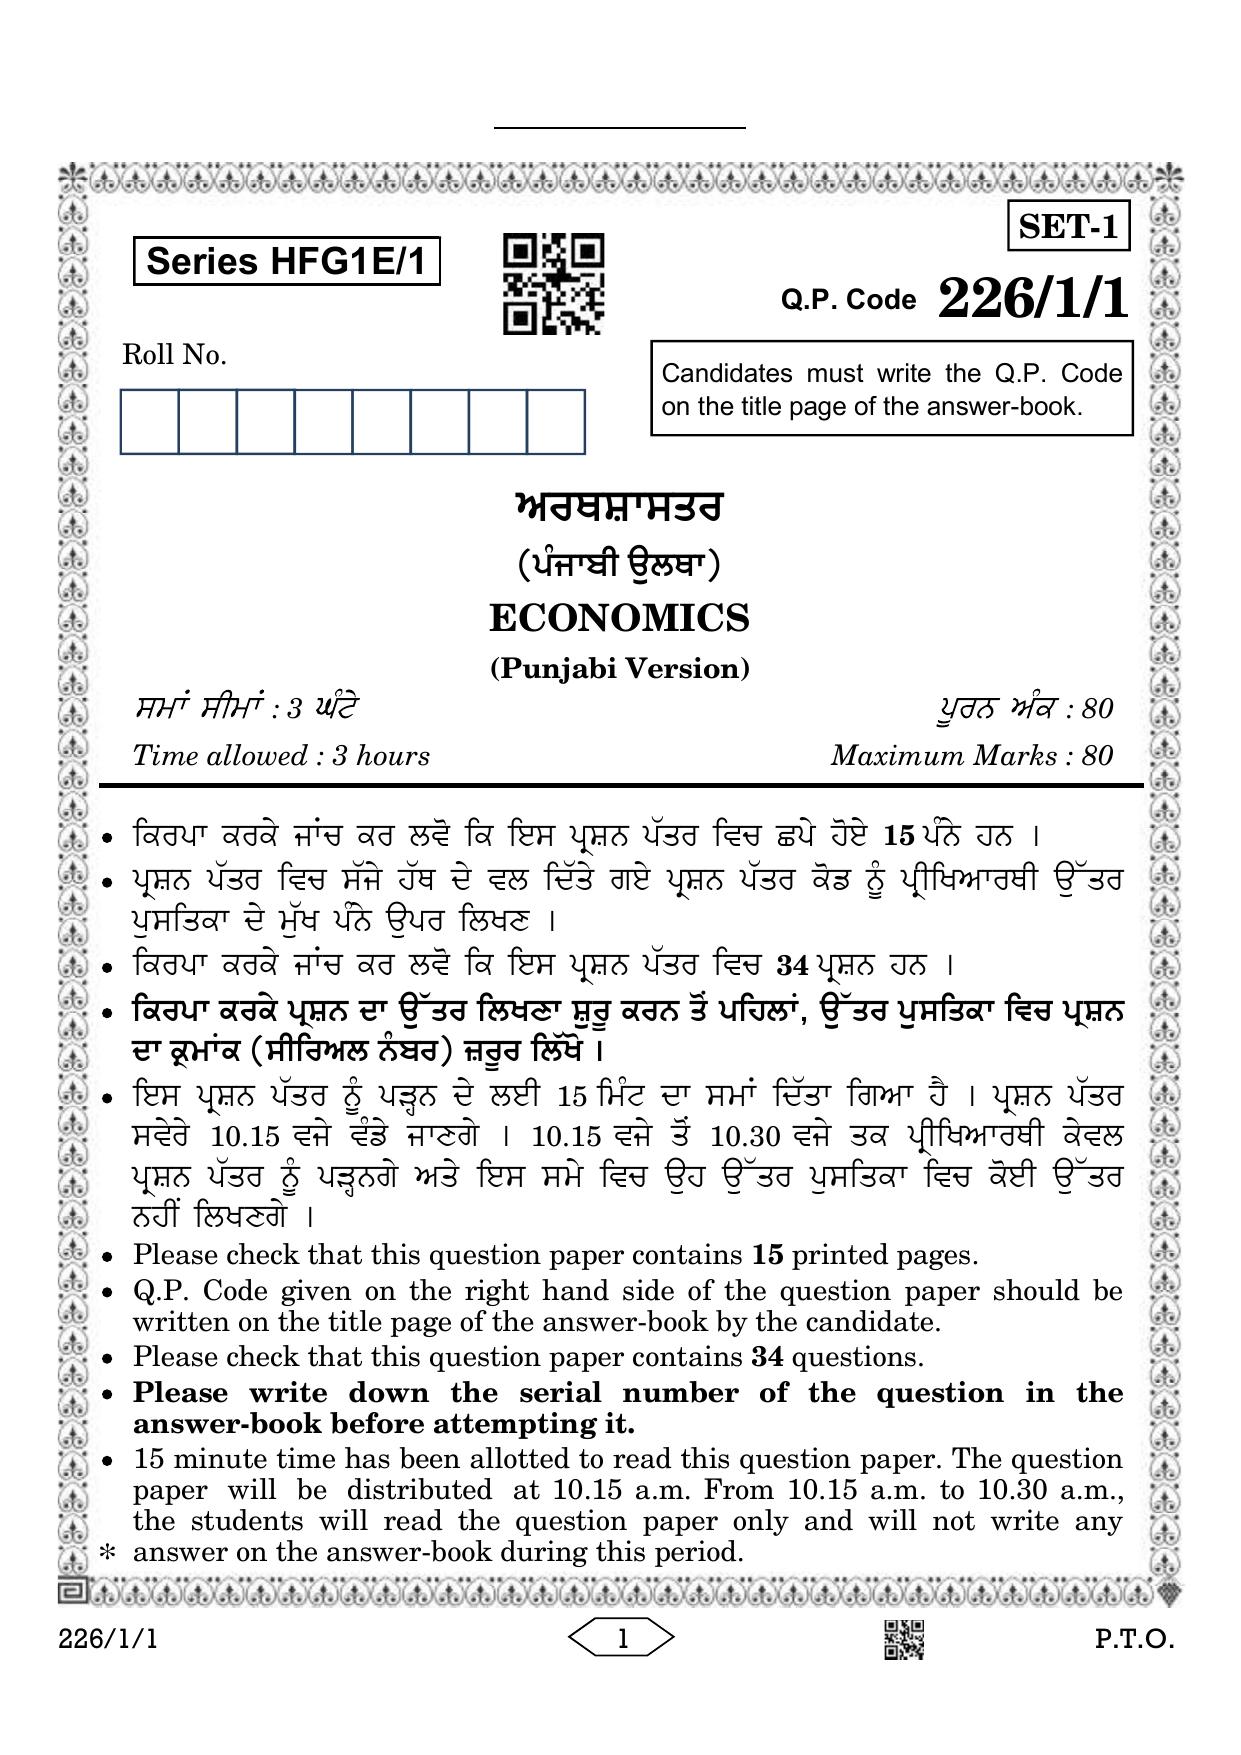 SET-1
Series HFG1E/1
Q.P. Code 226/1/1
Roll No.
Candidates must write the Q.P. Code
on the title page of the answer-book.
ਅਰਥਸ਼ਾਸਤਰ
(ਪੰਜਾਬੀ ਉਲਥਾ)
ECONOMICS
(Punjabi Version)
ਸਮਾਂ ਸੀਮਾਂ : 3 ਘੰਟੇ
ਪੂਰਨ ਅੰਕ : 80
Time allowed : 3 hours
Maximum Marks : 80
• ਕਿਰਪਾ ਕਰਕੇ ਜਾਂਚ ਕਰ ਲਵੋ ਕਿ ਇਸ ਪ੍ਰਸ਼ਨ ਪੱਤਰ ਵਿਚ ਛਪੇ ਹੋਏ 15 ਪੰਨੇ ਹਨ ।
• ਪ੍ਰਸ਼ਨ ਪੱਤਰ ਵਿਚ ਸੱਜੇ ਹੱਥ ਦੇ ਵਲ ਦਿੱਤੇ ਗਏ ਪ੍ਰਸ਼ਨ ਪੱਤਰ ਕੋਡ ਨੂੰ ਪ੍ਰੀਖਿਆਰਥੀ ਉੱਤਰ
ਪੁਸਤਿਕਾ ਦੇ ਮੁੱਖ ਪੰਨੇ ਉਪਰ ਲਿਖਣ ।
• ਕਿਰਪਾ ਕਰਕੇ ਜਾਂਚ ਕਰ ਲਵੋ ਕਿ ਇਸ ਪ੍ਰਸ਼ਨ ਪੱਤਰ ਵਿਚ 34 ਪ੍ਰਸ਼ਨ ਹਨ ।
• ਕਿਰਪਾ ਕਰਕੇ ਪ੍ਰਸ਼ਨ ਦਾ ਉੱਤਰ ਲਿਖਣਾ ਸ਼ੁਰੂ ਕਰਨ ਤੋਂ ਪਹਿਲਾਂ, ਉੱਤਰ ਪੁਸਤਿਕਾ ਵਿਚ ਪ੍ਰਸ਼ਨ
ਦਾ ਕ੍ਰਮਾਂਕ (ਸੀਰਿਅਲ ਨੰਬਰ) ਜ਼ਰੂਰ ਲਿੱਖੋ ।
• ਇਸ ਪ੍ਰਸ਼ਨ ਪੱਤਰ ਨੂੰ ਪੜ੍ਹਨ ਦੇ ਲਈ 15 ਮਿੰਟ ਦਾ ਸਮਾਂ ਦਿੱਤਾ ਗਿਆ ਹੈ । ਪ੍ਰਸ਼ਨ ਪੱਤਰ
ਸਵੇਰੇ 10.15 ਵਜੇ ਵੰਡੇ ਜਾਣਗੇ । 10.15 ਵਜੇ ਤੋਂ 10.30 ਵਜੇ ਤਕ ਪ੍ਰੀਖਿਆਰਥੀ ਕੇਵਲ
ਪ੍ਰਸ਼ਨ ਪੱਤਰ ਨੂੰ ਪੜ੍ਹਨਗੇ ਅਤੇ ਇਸ ਸਮੇ ਵਿਚ ਉਹ ਉੱਤਰ ਪੁਸਤਿਕਾ ਵਿਚ ਕੋਈ ਉੱਤਰ
ਨਹੀਂ ਲਿਖਣਗੇ ।
• Please check that this question paper contains 15 printed pages.
• Q.P. Code given on the right hand side of the question paper should be
written on the title page of the answer-book by the candidate.
• Please check that this question paper contains 34 questions.
• Please write down the serial number of the question in the
answer-book before attempting it.
• 15 minute time has been allotted to read this question paper. The question
paper will be distributed at 10.15 a.m. From 10.15 a.m. to 10.30 a.m.,
the students will read the question paper only and will not write any
* answer on the answer-book during this period.
226/1/1
1
P.T.O.